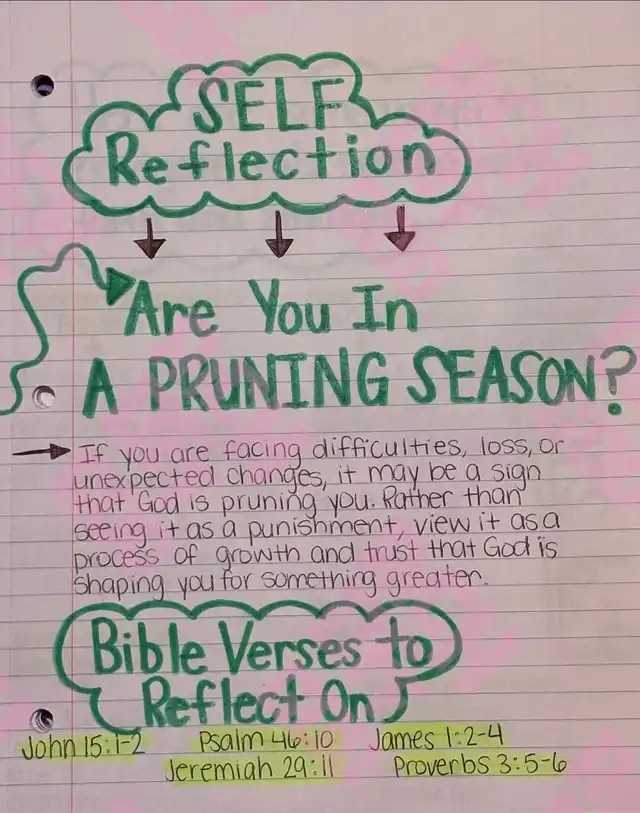 SELF
Reflection
Are You In
A PRUNING SEASON?
If you are facing difficulties, loss, or
unexpected changes, it may be a sign
that God is pruning you. Rather than
seeing it as a punishment, view it as a
process of growth and trust that God is
shaping you for something greater.
Bible Verses to
Reflect On
John 15:1-2 Psalm 46:10 James 1:2-4
Jeremiah 29:11 Proverbs 3:5-6